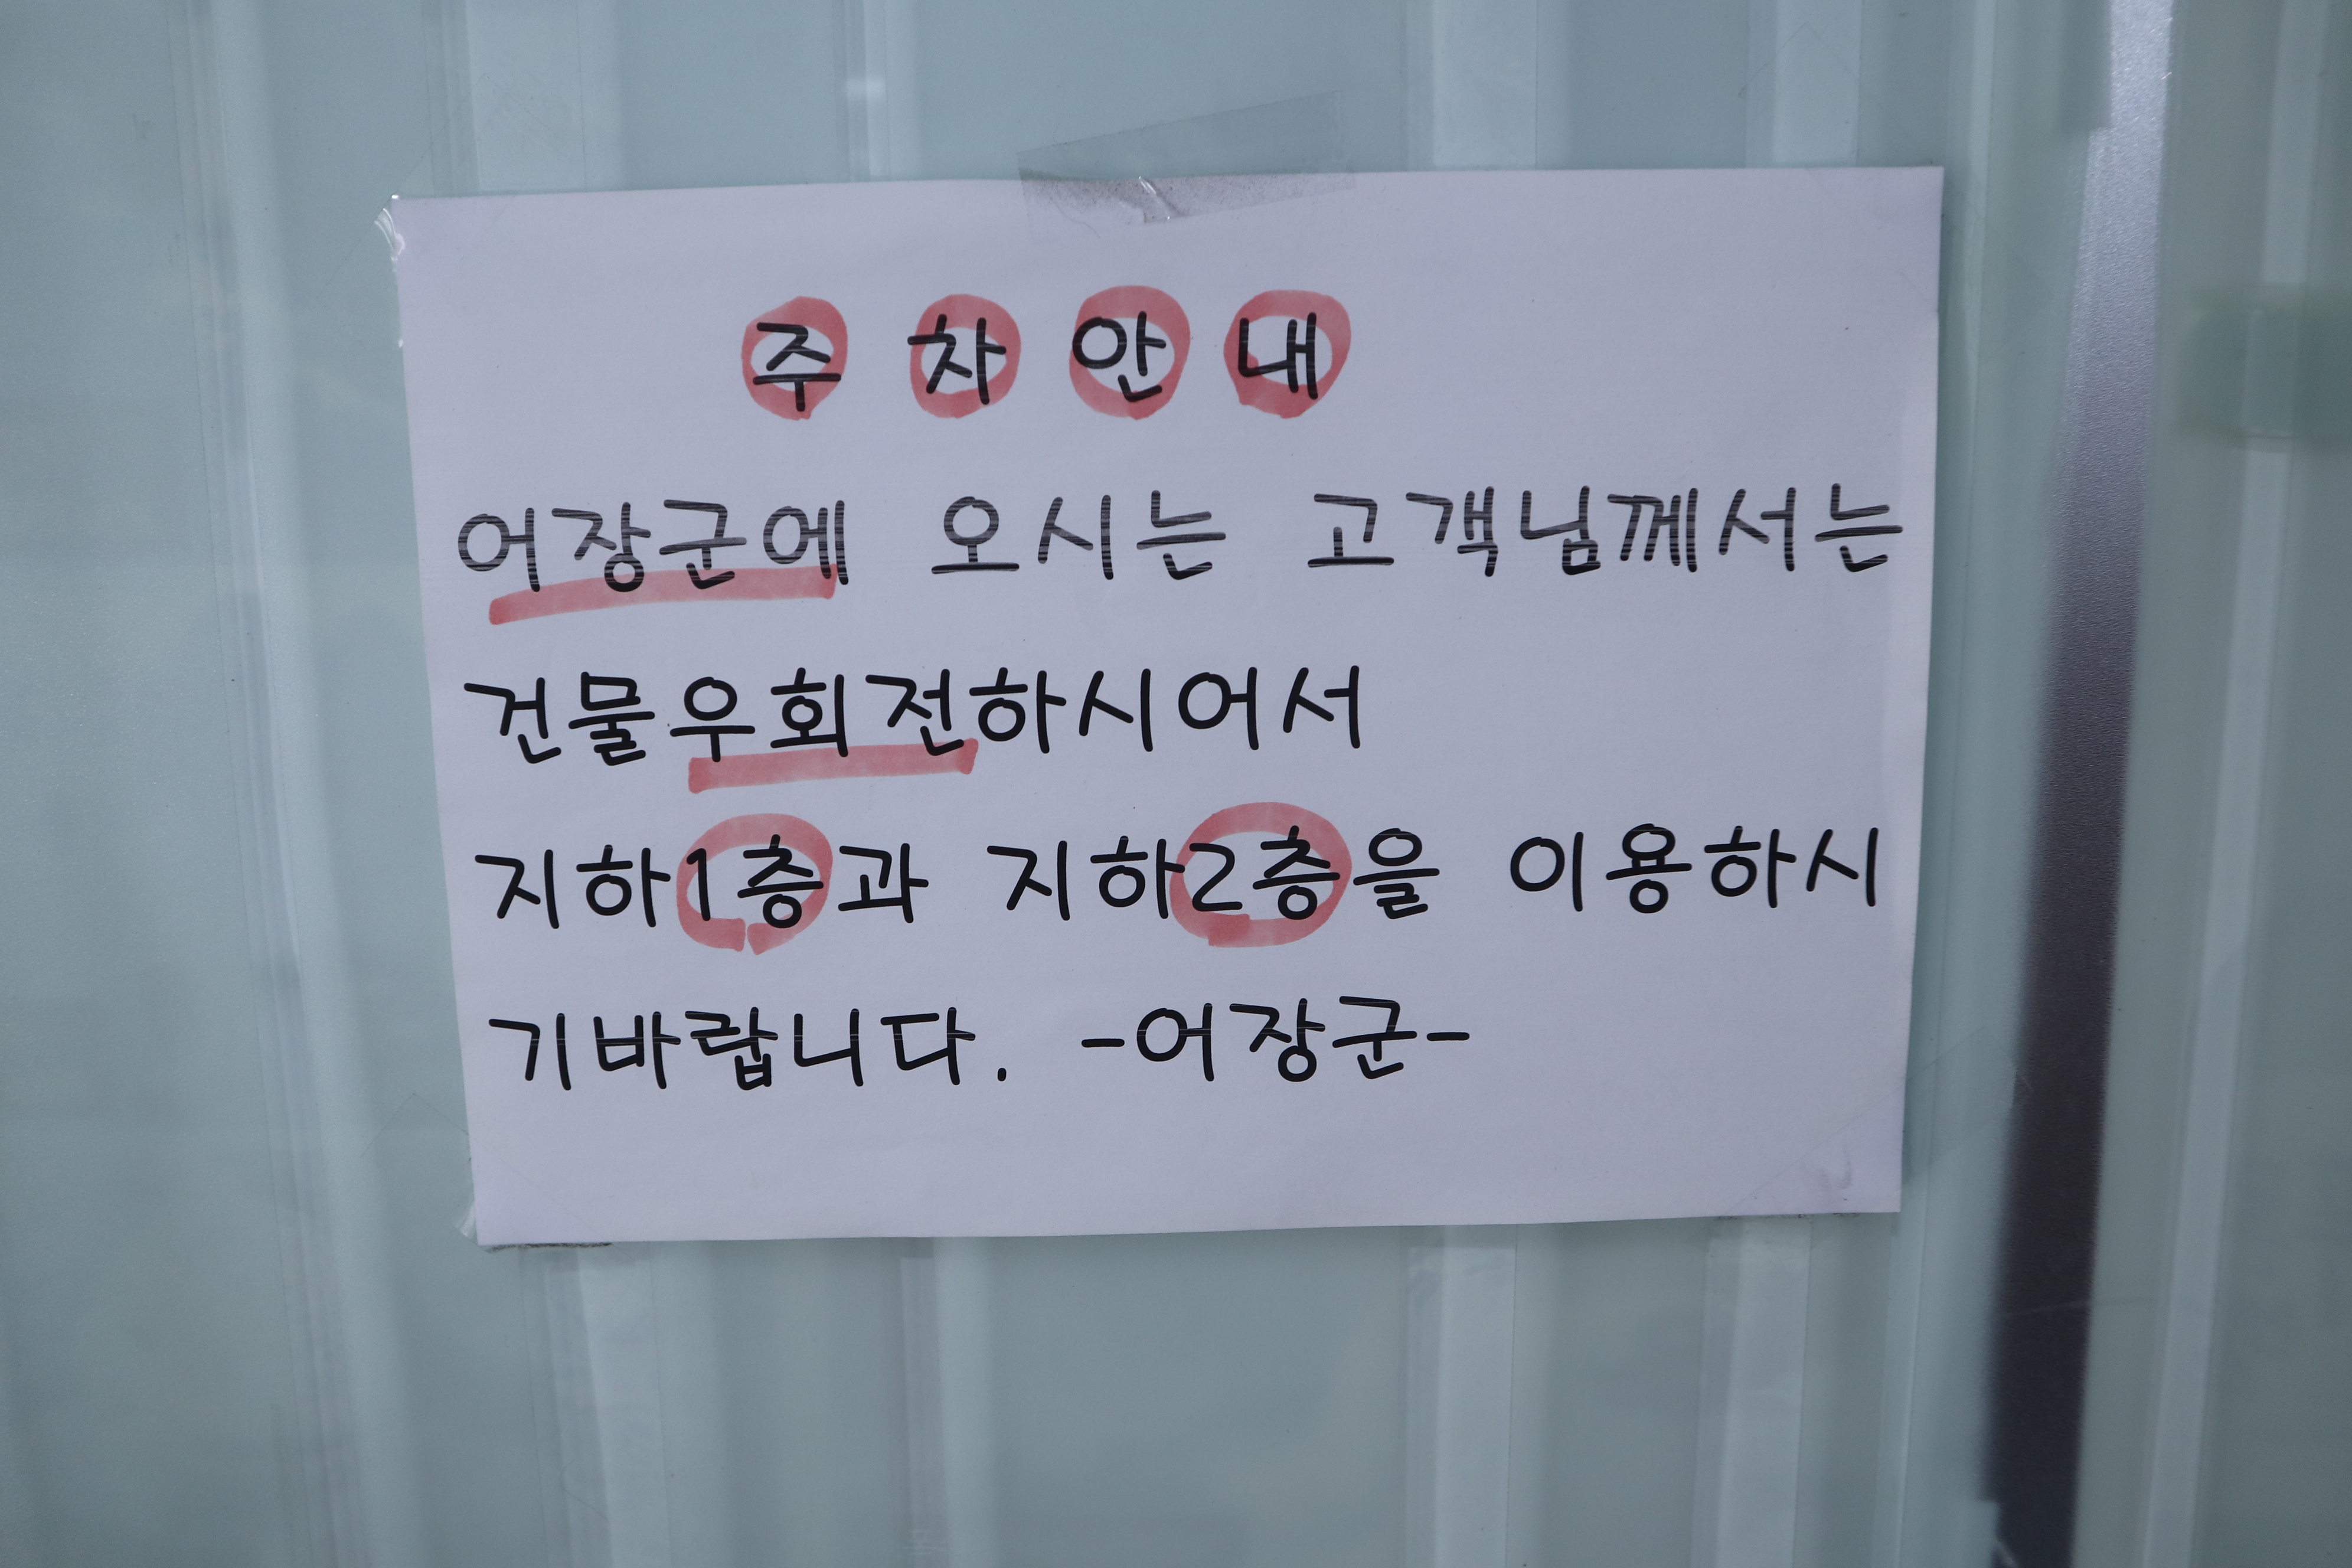 주 차 안 내
어장군에 오시는 고객님께서는
건물우회전하시어서
지하1층과 지하2층을 이용하시
기바랍니다. -어장군-